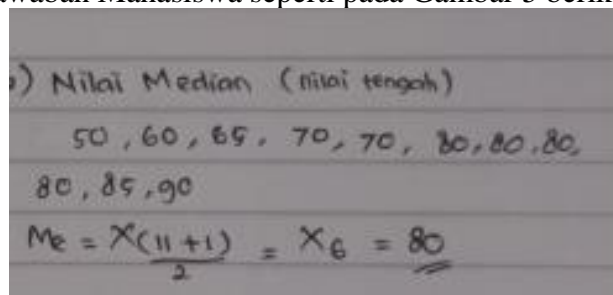 Jawaban Mahasiswa seperti pada Gambar 3 berikut
) Nilai Median (nilai tengah)
50, 60, 65, 70, 70, 80, 80, 80,
80, 85, 90
Me = X(11+1)/2 = X6 = 80